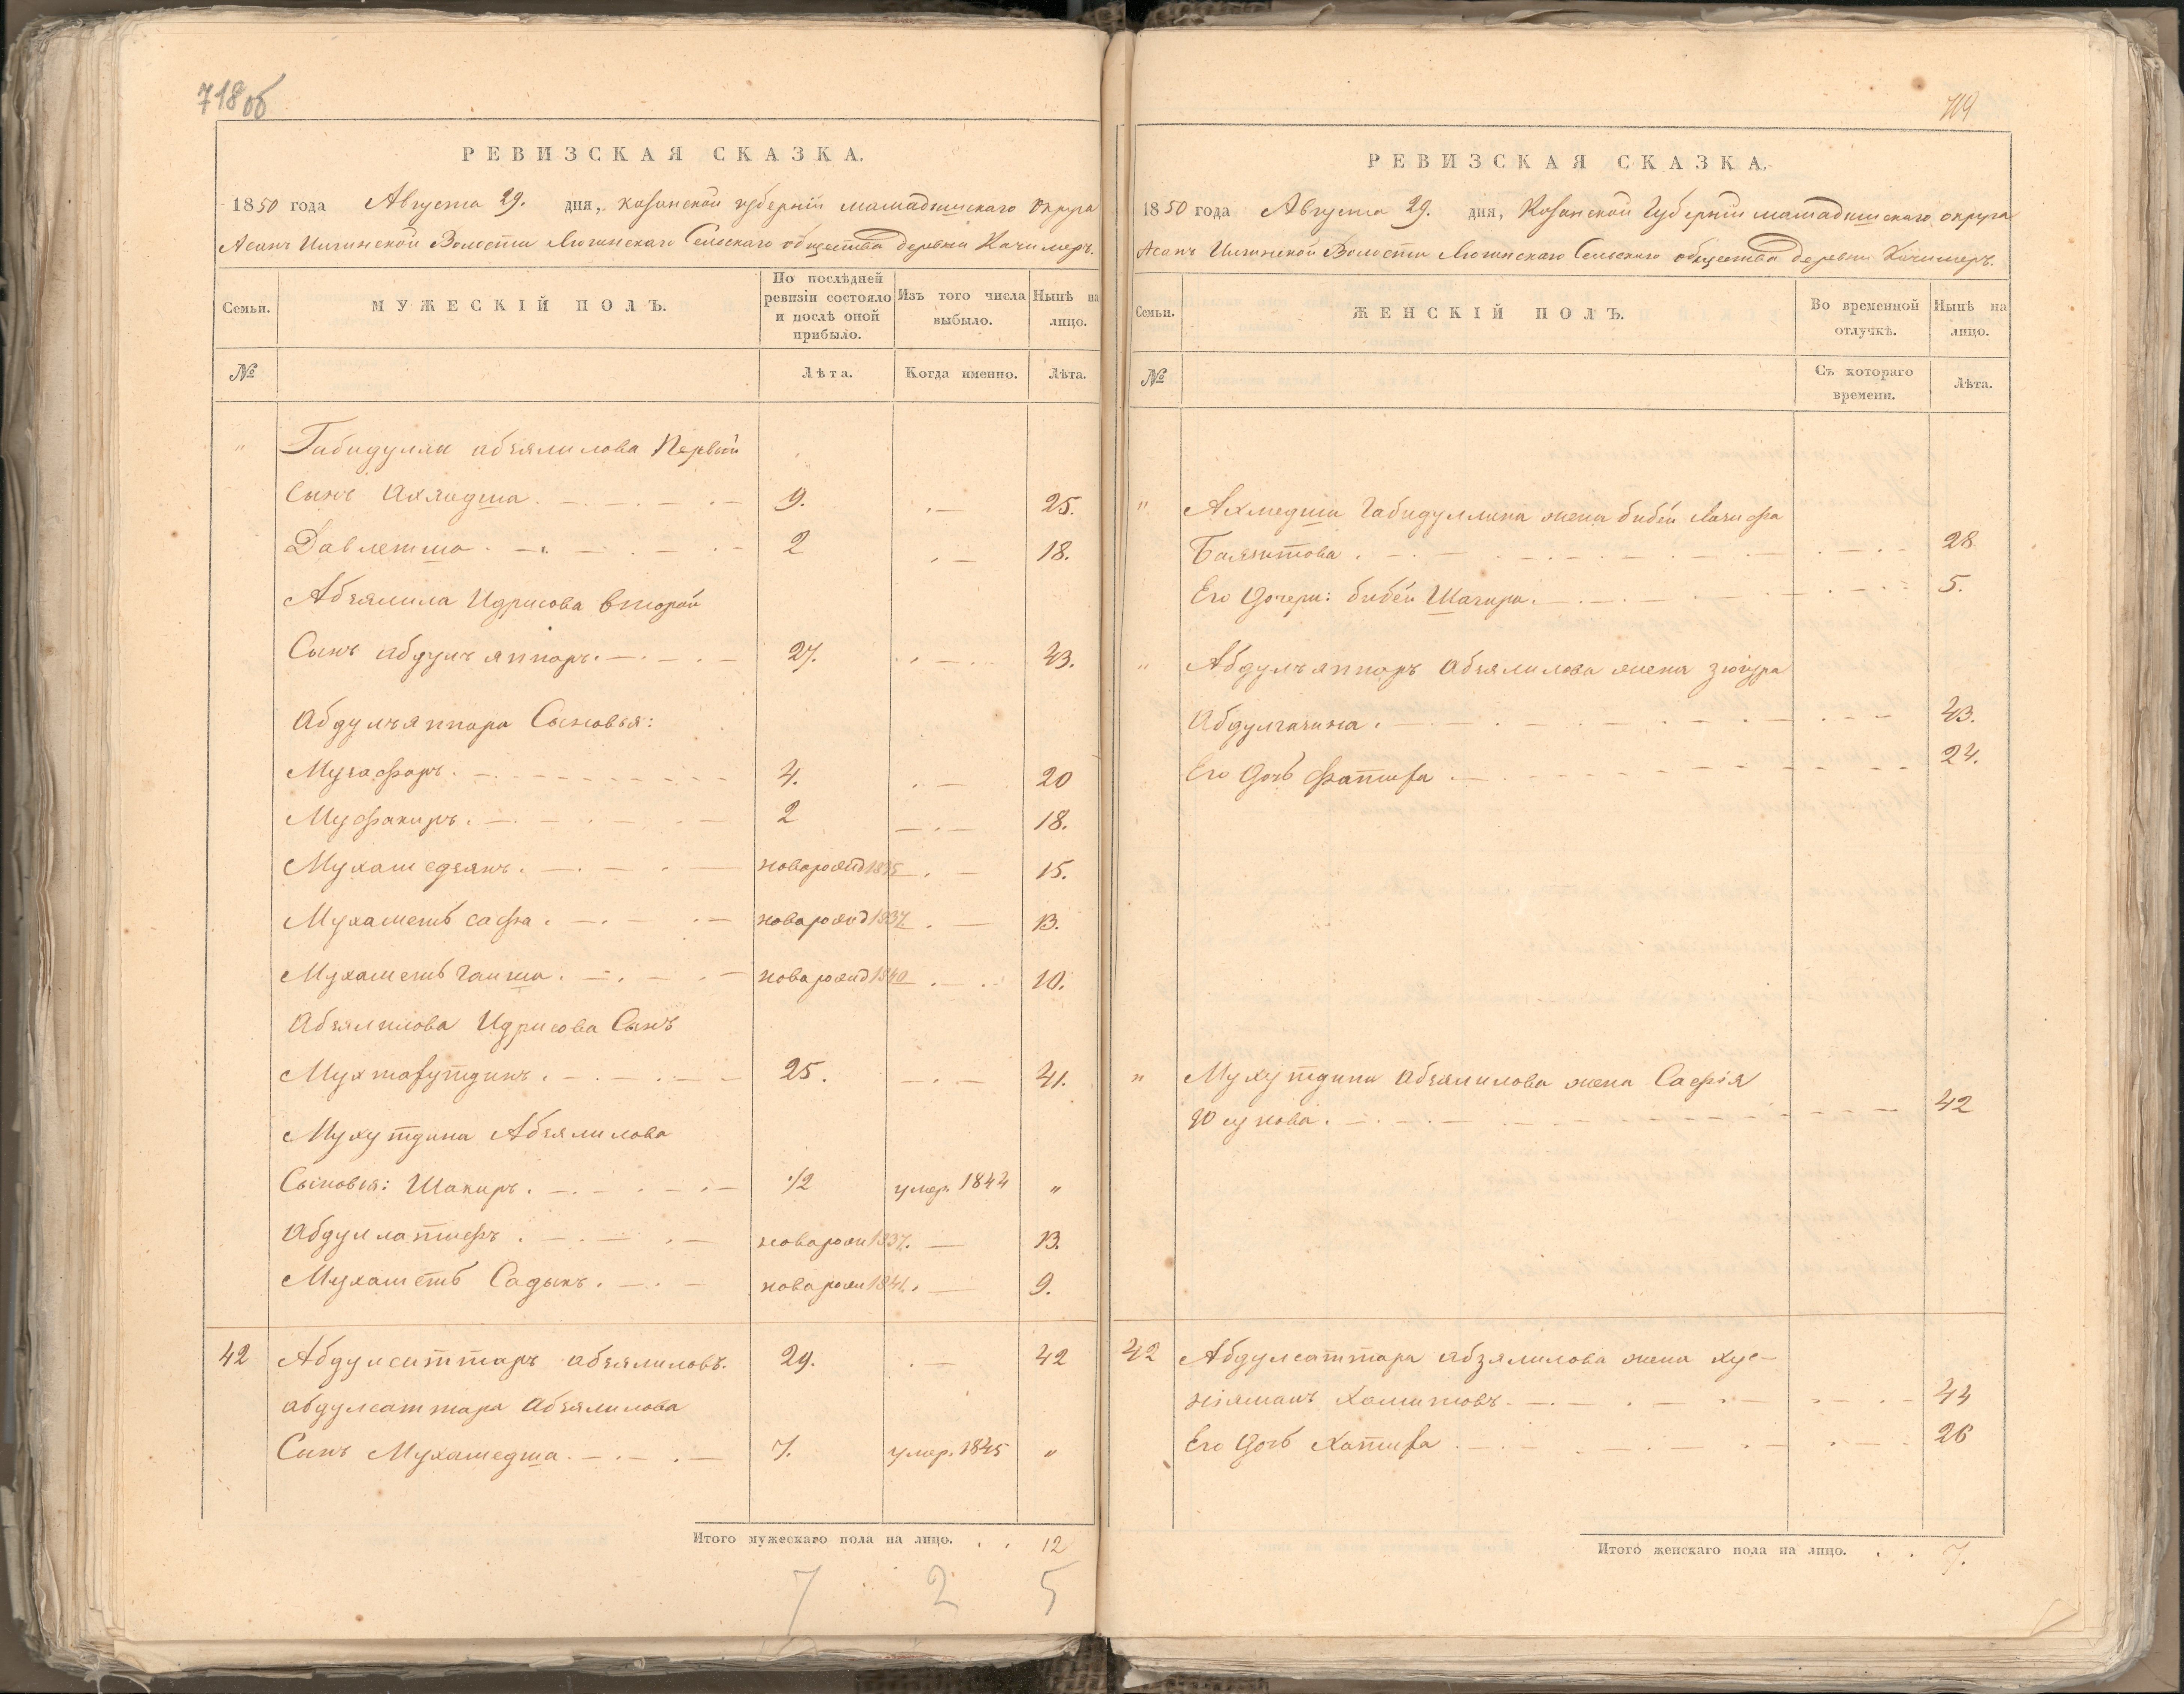 718об
РЕВИЗСКАЯ СКАЗКА.
1850 года Августа 29. дня, Казанской губерніи Мамадышскаго округа
Асанъ Илгинской Волости Сельскаго общества деревни Качимеръ.
Семьи.
МУЖЕСКІЙ ПОЛЪ.
По послѣдней ревизіи состояло и послѣ оной прибыло.
Изъ того числа выбыло.
Нынѣ на лицо.
№
Лѣта.
Когда именно.
Лѣта.
" Габидуллы абзялилова Первой
Сынъ Ахмедша 9. 25.
Давлетша 2 18.
Абзялила Идрисова второй
Сынъ абдулъяппаръ 27. 43.
Абдулъяппара Сыновья:
Мугафаръ 4. 20
Мусфакиръ 2 18.
Мухамедзянъ новарожд 1835 15.
Мухаметь сафа новарожд 1837 13.
Мухаметь Ганша новарожд 1840 10.
Абзялилова Идрисова Сынъ
25. 41.
Мухутдина Абзялилова
Сыновья: Шакиръ 1/2 умер. 1844 "
Абдуллатифъ новарож 1837. 13.
Мухаметь Садыкъ новарож 1841. 9.
42 Абдулсаттаръ абзялиловъ. 29. 42
абдулсаттара Абзялилова
Сынъ Мухамедша 7. умер. 1845 "
Итого мужескаго пола на лицо. 12
7 2 5
719
РЕВИЗСКАЯ СКАЗКА.
1850 года Августа 29. дня, Казанской Губерніи мамадышскаго округа
Асанъ Илгинской Волости Сельскаго общества деревни Качимеръ.
Семьи.
ЖЕНСКІЙ ПОЛЪ.
Во временной отлучкѣ.
Нынѣ на лицо.
№
Съ котораго времени.
Лѣта.
" Ахмедши Габидуллина жена бибѣй
Баязитова 28
Его Дочери: бибѣй Шагири 5.
" Абдулъяппаръ Абзялилова жена зюгура
Абдулгазина 43.
Его Дочь Фатиха 24.
" Мухутдина абзялилова жена Сафія
42
42 Абдулсаттара абзялилова жена хус-
ніямалъ Хамитовъ 44
Его Дочь Хатифа 26
Итого женскаго пола на лицо. 7.